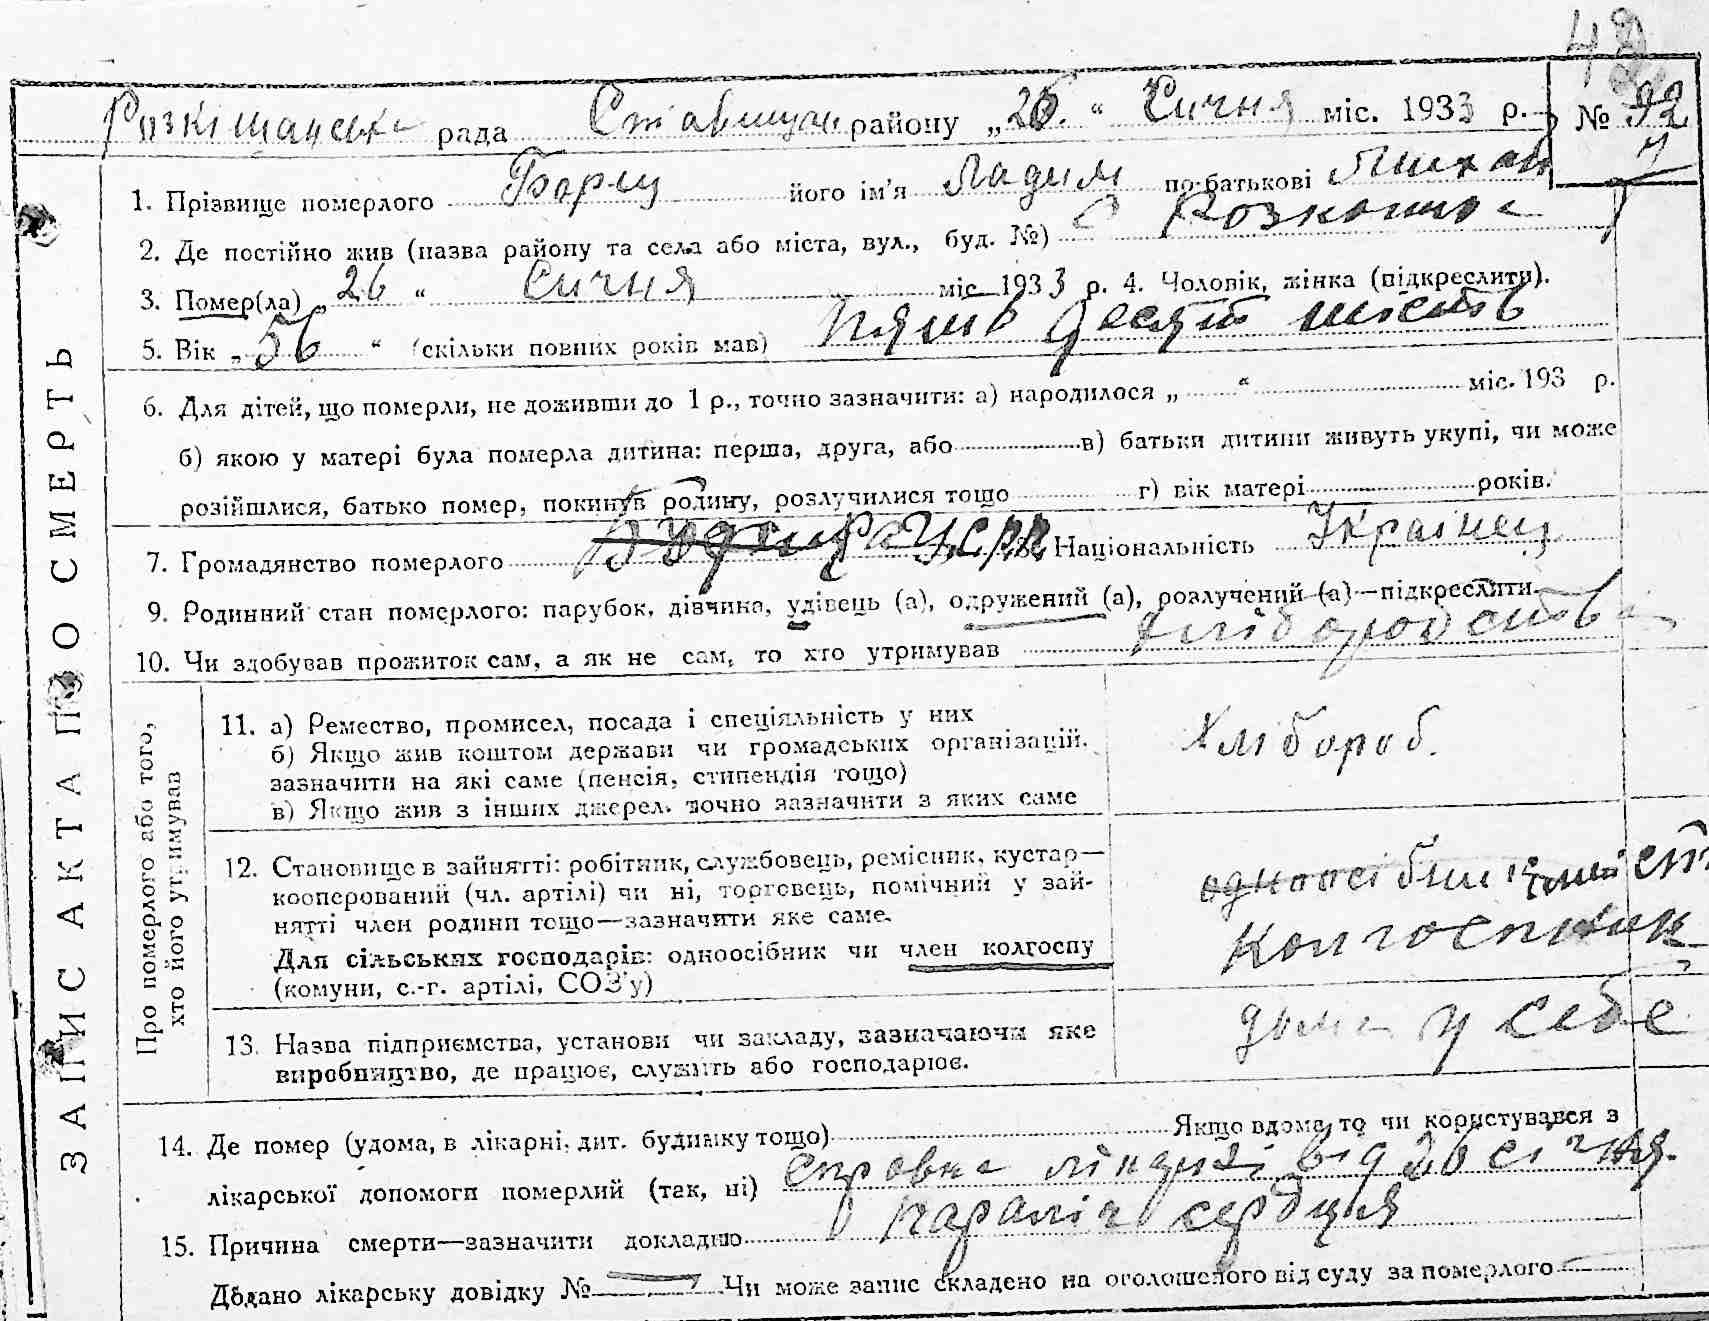 42
рада району „26.“ Січня міс. 1933 р. № 92
1. Прізвище померлого його ім'я по-батькові
2. Де постійно жив (назва району та села або міста, вул., буд. №) с Розкошна
3. Помер(ла) „26“ Січня міс. 1933 р. 4. Чоловік, жінка (підкреслити).
5. Вік „56“ (скільки повних років мав) пять десят шість
6. Для дітей, що померли, не доживши до 1 р., точно зазначити: а) народилося „ “ міс. 193 р.
б) якою у матері була померла дитина: перша, друга, або в) батьки дитини живуть укупі, чи може
розійшлися, батько помер, покинув родину, розлучилися тощо г) вік матері років.
7. Громадянство померлого УСРР 8. Національність Українец
9. Родинний стан померлого: парубок, дівчина, удівець (а), одружений (а), розлучений (а)—підкреслити.
10. Чи здобував прожиток сам, а як не сам, то хто утримував хліборобства
ЗАПИС АКТА ПРО СМЕРТЬ
Про померлого або того,
хто його утримував
11. а) Ремество, промисел, посада і спеціяльність у них
б) Якщо жив коштом держави чи громадських організацій,
зазначити на які саме (пенсія, стипендія тощо)
в) Якщо жив з інших джерел, точно зазначити з яких саме
Хлібороб.
12. Становище в зайнятті: робітник, службовець, ремісник, кустар—
кооперований (чл. артілі) чи ні, торговець, помічний у зай-
нятті член родини тощо—зазначити яке саме.
Для сільських господарів: одноосібник чи член колгоспу
(комуни, с.-г. артілі, СОЗ'у)
Колгоспник
13. Назва підприємства, установи чи закладу, зазначаючи яке
виробництво, де працює, служить або господарює.
дома у себе
14. Де помер (удома, в лікарні, дит. будинку тощо) Якщо вдома, то чи користувався з
лікарської допомоги померлий (так, ні) справка від 26 січня.
15. Причина смерти—зазначити докладно параліч сердця
Додано лікарську довідку № Чи може запис складено на оголошеного від суду за померлого